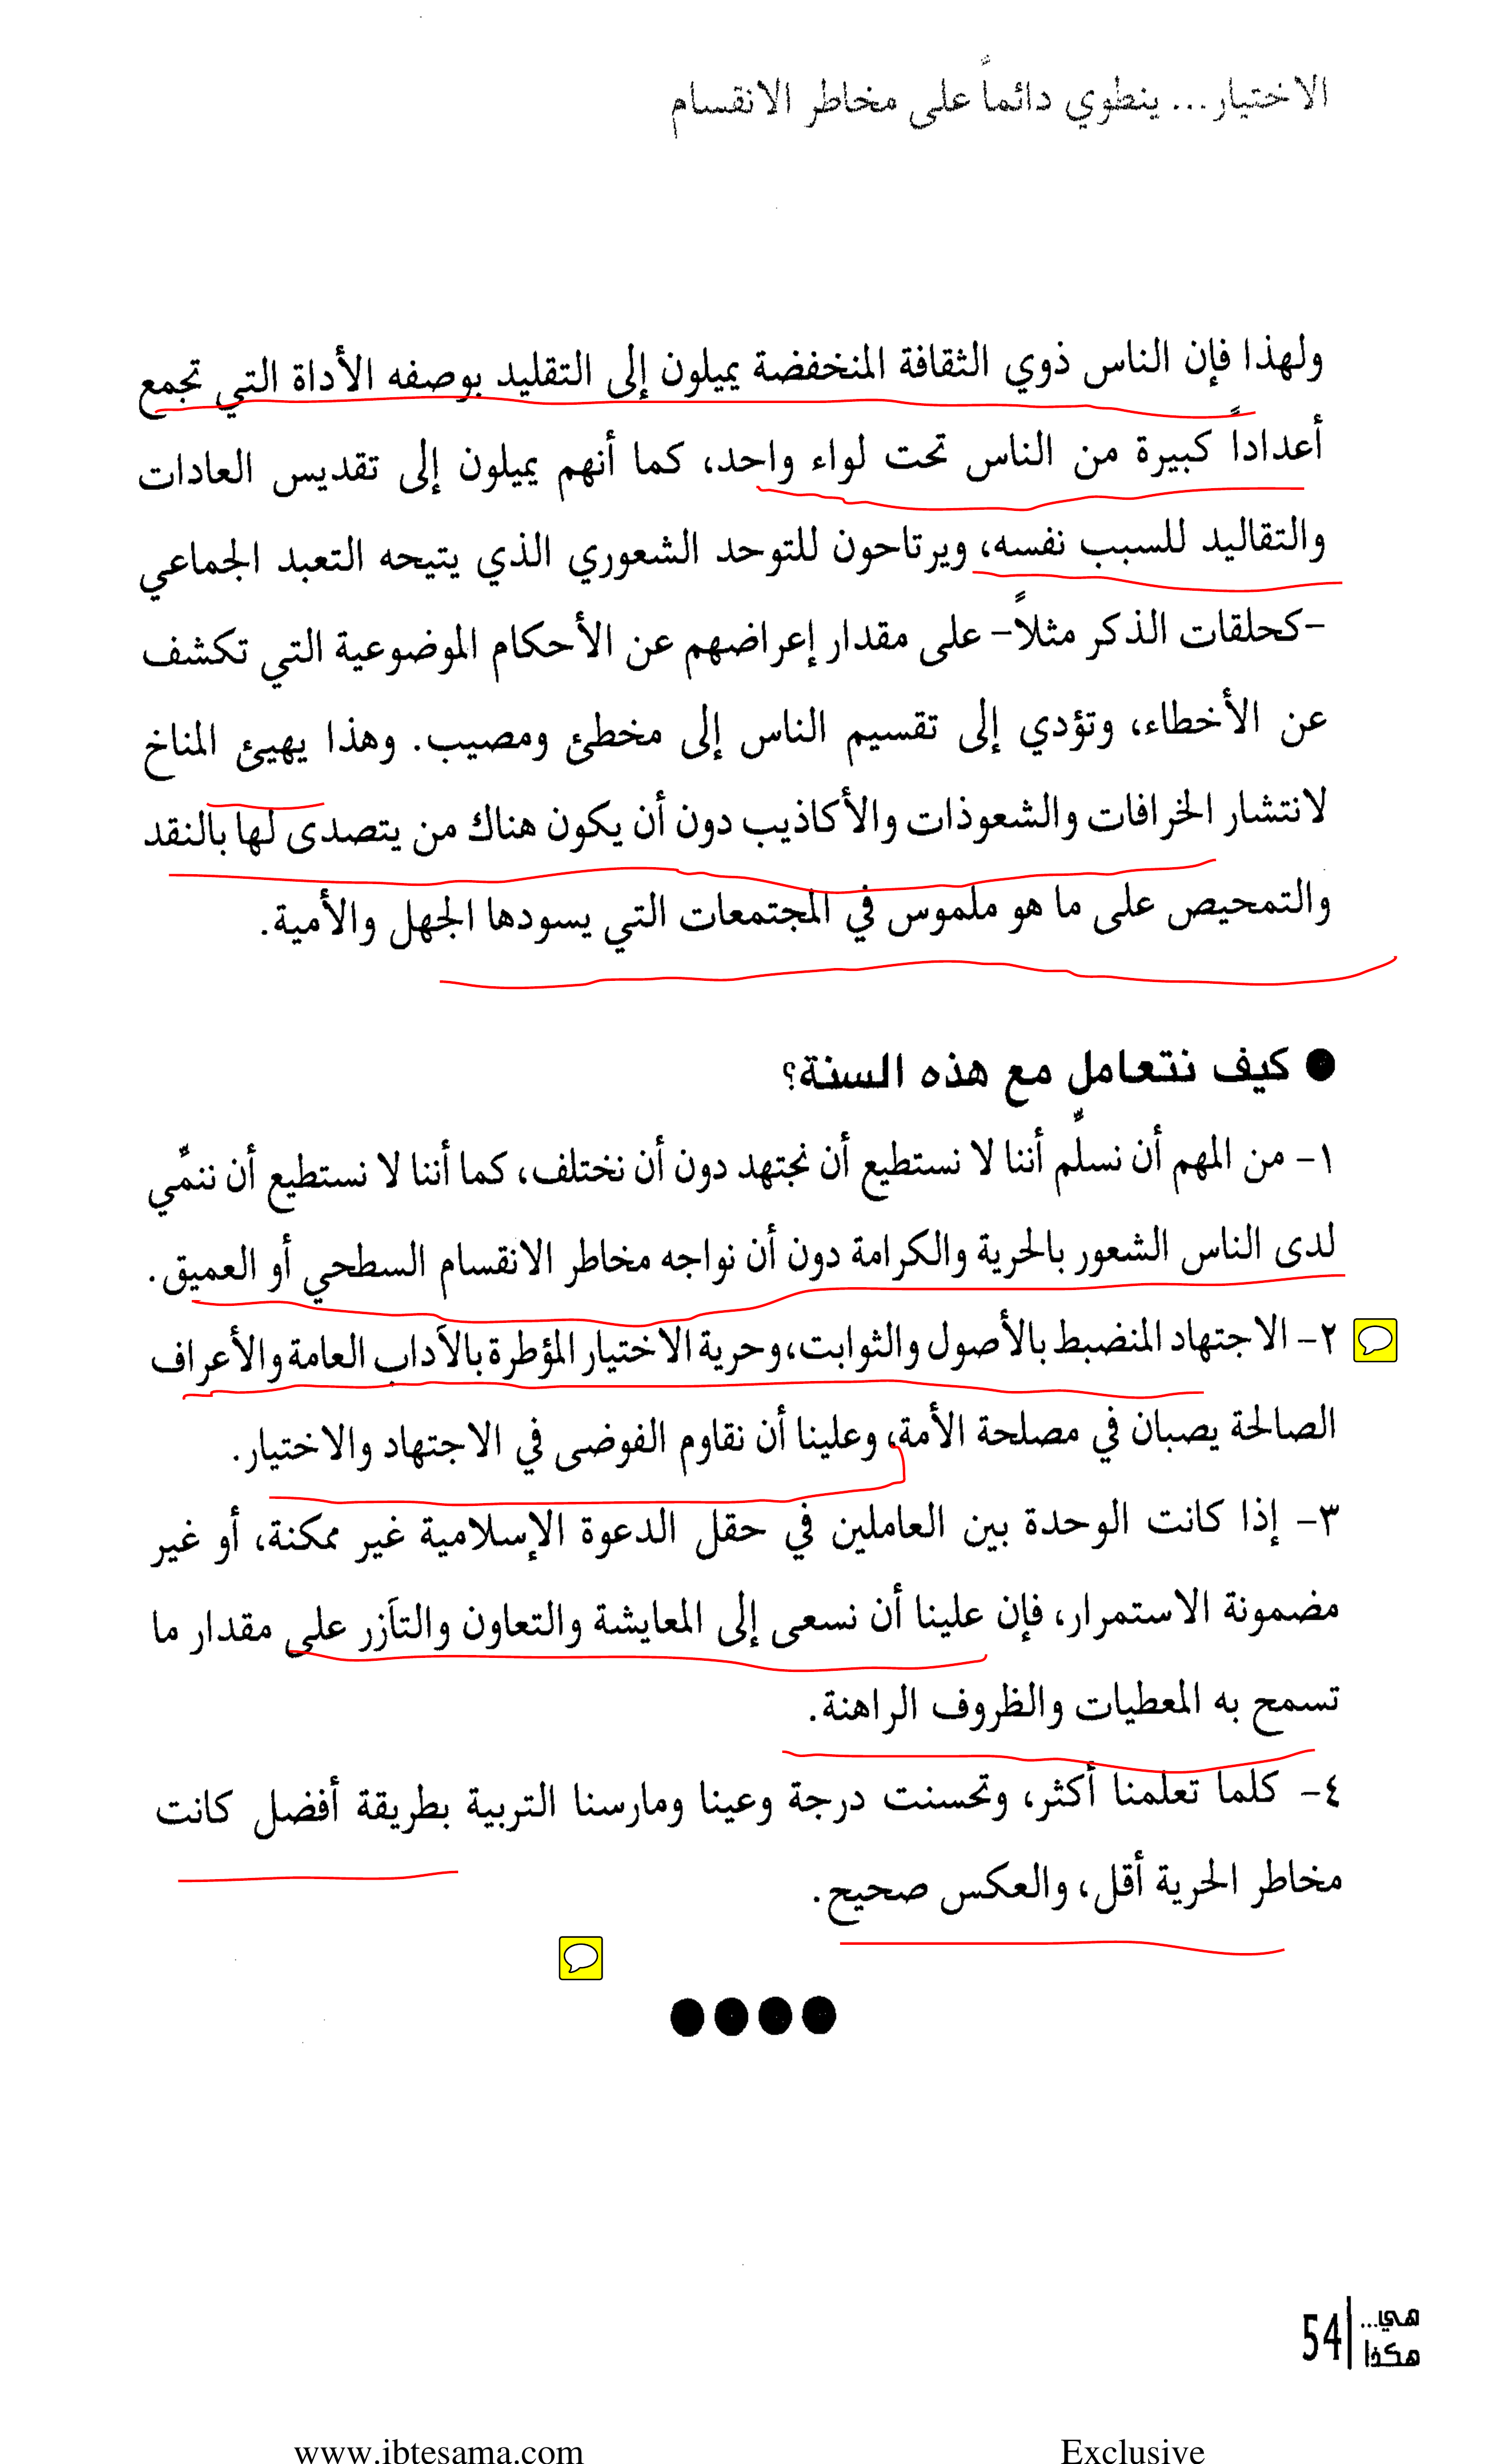 الاختيار... ينطوي دائماً على مخاطر الانقسام
ولهذا فإن الناس ذوي الثقافة المنخفضة يميلون إلى التقليد بوصفه الأداة التي تجمع
أعداداً كبيرة من الناس تحت لواء واحد، كما أنهم يميلون إلى تقديس العادات
والتقاليد للسبب نفسه، ويرتاحون للتوحد الشعوري الذي يتيحه التعبد الجماعي
-كحلقات الذكر مثلاً- على مقدار إعراضهم عن الأحكام الموضوعية التي تكشف
عن الأخطاء، وتؤدي إلى تقسيم الناس إلى مخطئ ومصيب. وهذا يهيئ المناخ
لانتشار الخرافات والشعوذات والأكاذيب دون أن يكون هناك من يتصدى لها بالنقد
والتمحيص على ما هو ملموس في المجتمعات التي يسودها الجهل والأمية.
● كيف نتعامل مع هذه السنة؟
١- من المهم أن نسلِّم أننا لا نستطيع أن نجتهد دون أن نختلف، كما أننا لا نستطيع أن ننمِّي
لدى الناس الشعور بالحرية والكرامة دون أن نواجه مخاطر الانقسام السطحي أو العميق.
٢- الاجتهاد المنضبط بالأصول والثوابت، وحرية الاختيار المؤطرة بالآداب العامة والأعراف
الصالحة يصبان في مصلحة الأمة، وعلينا أن نقاوم الفوضى في الاجتهاد والاختيار.
٣- إذا كانت الوحدة بين العاملين في حقل الدعوة الإسلامية غير ممكنة، أو غير
مضمونة الاستمرار، فإن علينا أن نسعى إلى المعايشة والتعاون والتآزر على مقدار ما
تسمح به المعطيات والظروف الراهنة.
٤- كلما تعلمنا أكثر، وتحسنت درجة وعينا ومارسنا التربية بطريقة أفضل كانت
مخاطر الحرية أقل، والعكس صحيح.
●●●●
هي...
هكذا
54
www.ibtesama.com
Exclusive